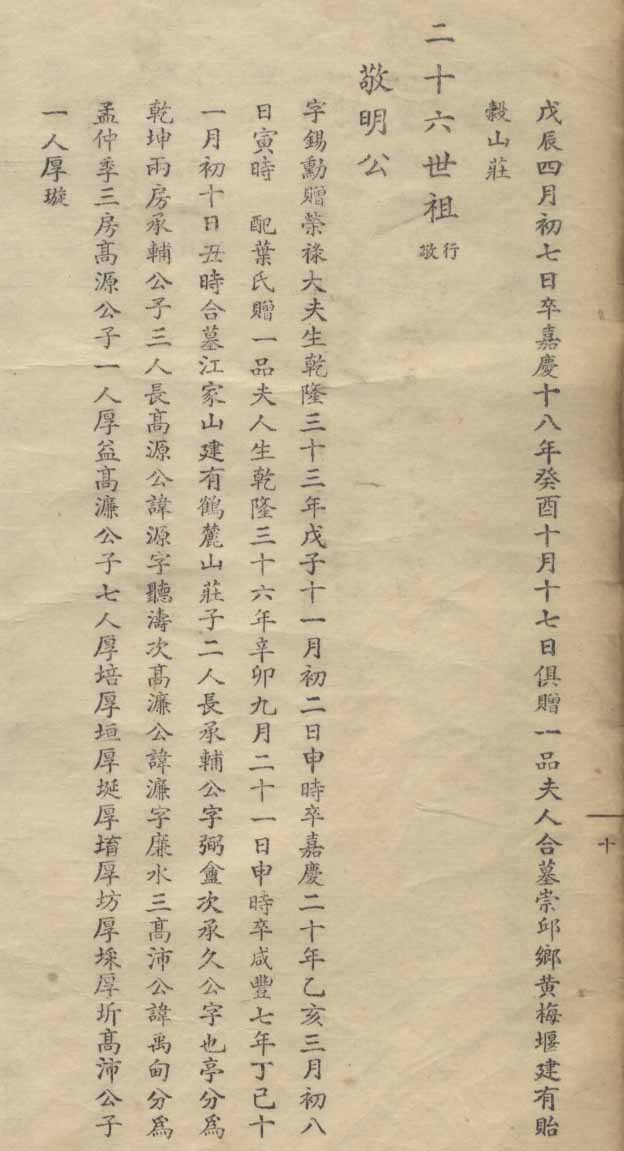 十
戊辰四月初七日卒嘉慶十八年癸酉十月十七日俱贈一品夫人合墓崇邱鄉黃梅堰建有貽
穀山莊
二十六世祖 敬行
敬明公
字錫勳贈榮祿大夫生乾隆三十三年戊子十一月初二日申時卒嘉慶二十年乙亥三月初八
日寅時 配葉氏贈一品夫人生乾隆三十六年辛卯九月二十一日申時卒咸豐七年丁巳十
一月初十日丑時合墓江家山建有鶴麓山莊子二人長承輔公字弼盦次承久公字也亭分為
乾坤兩房承輔公子三人長高源公諱源字聽濤次高濂公諱濂字廉水三高沛公諱禹甸分為
孟仲季三房高源公子一人厚益高濂公子七人厚培厚垣厚埏厚堉厚坊厚埰厚圻高沛公子
一人厚璇